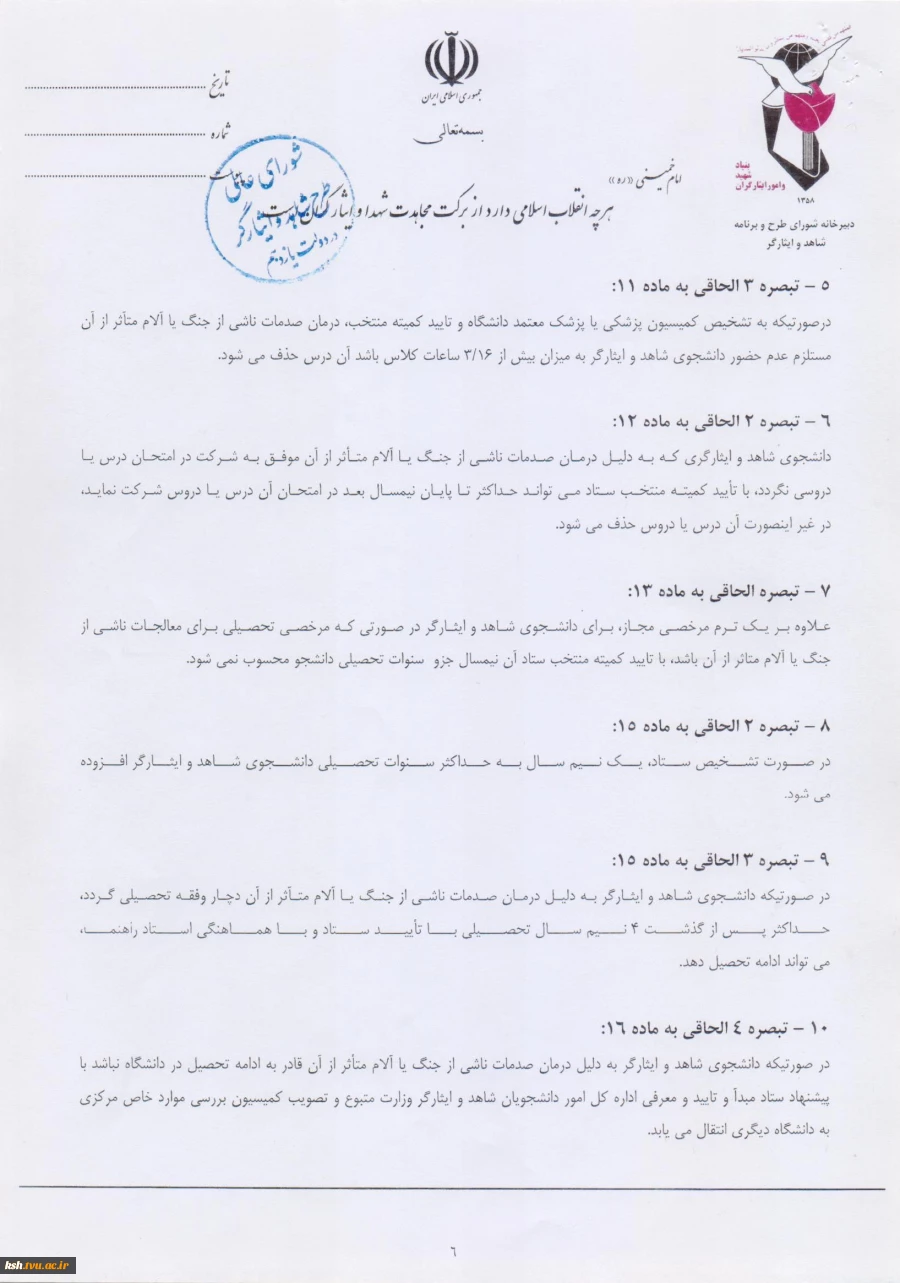 جمهوری اسلامی ایران
بسمه تعالی
تاریخ
شماره
پیوست
بنیاد
شهید
و امور ایثارگران
۱۳۵۸
دبیرخانه شورای طرح و برنامه
شاهد و ایثارگر
امام خمینی «ره»
هرچه انقلاب اسلامی دارد از برکت مجاهدت شهدا و ایثارگران است
شورای عالی
طرح شاهد و ایثارگر
در دولت یازدهم
۵ – تبصره ۳ الحاقی به ماده ۱۱:
درصورتیکه به تشخیص کمیسیون پزشکی یا پزشک معتمد دانشگاه و تایید کمیته منتخب، درمان صدمات ناشی از جنگ یا آلام متأثر از آن
مستلزم عدم حضور دانشجوی شاهد و ایثارگر به میزان بیش از ۳/۱۶ ساعات کلاس باشد آن درس حذف می شود.
۶ – تبصره ۲ الحاقی به ماده ۱۲:
دانشجوی شاهد و ایثارگری که به دلیل درمان صدمات ناشی از جنگ یا آلام متأثر از آن موفق به شرکت در امتحان درس یا
دروسی نگردد، با تأیید کمیته منتخب ستاد می تواند حداکثر تا پایان نیمسال بعد در امتحان آن درس یا دروس شرکت نماید،
در غیر اینصورت آن درس یا دروس حذف می شود.
۷ – تبصره الحاقی به ماده ۱۳:
علاوه بر یک ترم مرخصی مجاز، برای دانشجوی شاهد و ایثارگر در صورتی که مرخصی تحصیلی برای معالجات ناشی از
جنگ یا آلام متاثر از آن باشد، با تایید کمیته منتخب ستاد آن نیمسال جزو سنوات تحصیلی دانشجو محسوب نمی شود.
۸ – تبصره ۲ الحاقی به ماده ۱۵:
در صورت تشخیص ستاد، یک نیم سال به حداکثر سنوات تحصیلی دانشجوی شاهد و ایثارگر افزوده
می شود.
۹ – تبصره ۳ الحاقی به ماده ۱۵:
در صورتیکه دانشجوی شاهد و ایثارگر به دلیل درمان صدمات ناشی از جنگ یا آلام متأثر از آن دچار وقفه تحصیلی گردد،
حداکثر پس از گذشت ۴ نیم سال تحصیلی با تأیید ستاد و با هماهنگی استاد راهنما،
می تواند ادامه تحصیل دهد.
۱۰ – تبصره ٤ الحاقی به ماده ۱۶:
در صورتیکه دانشجوی شاهد و ایثارگر به دلیل درمان صدمات ناشی از جنگ یا آلام متأثر از آن قادر به ادامه تحصیل در دانشگاه نباشد با
پیشنهاد ستاد مبدأ و تایید و معرفی اداره کل امور دانشجویان شاهد و ایثارگر وزارت متبوع و تصویب کمیسیون بررسی موارد خاص مرکزی
به دانشگاه دیگری انتقال می یابد.
٦
ksh.tvu.ac.ir